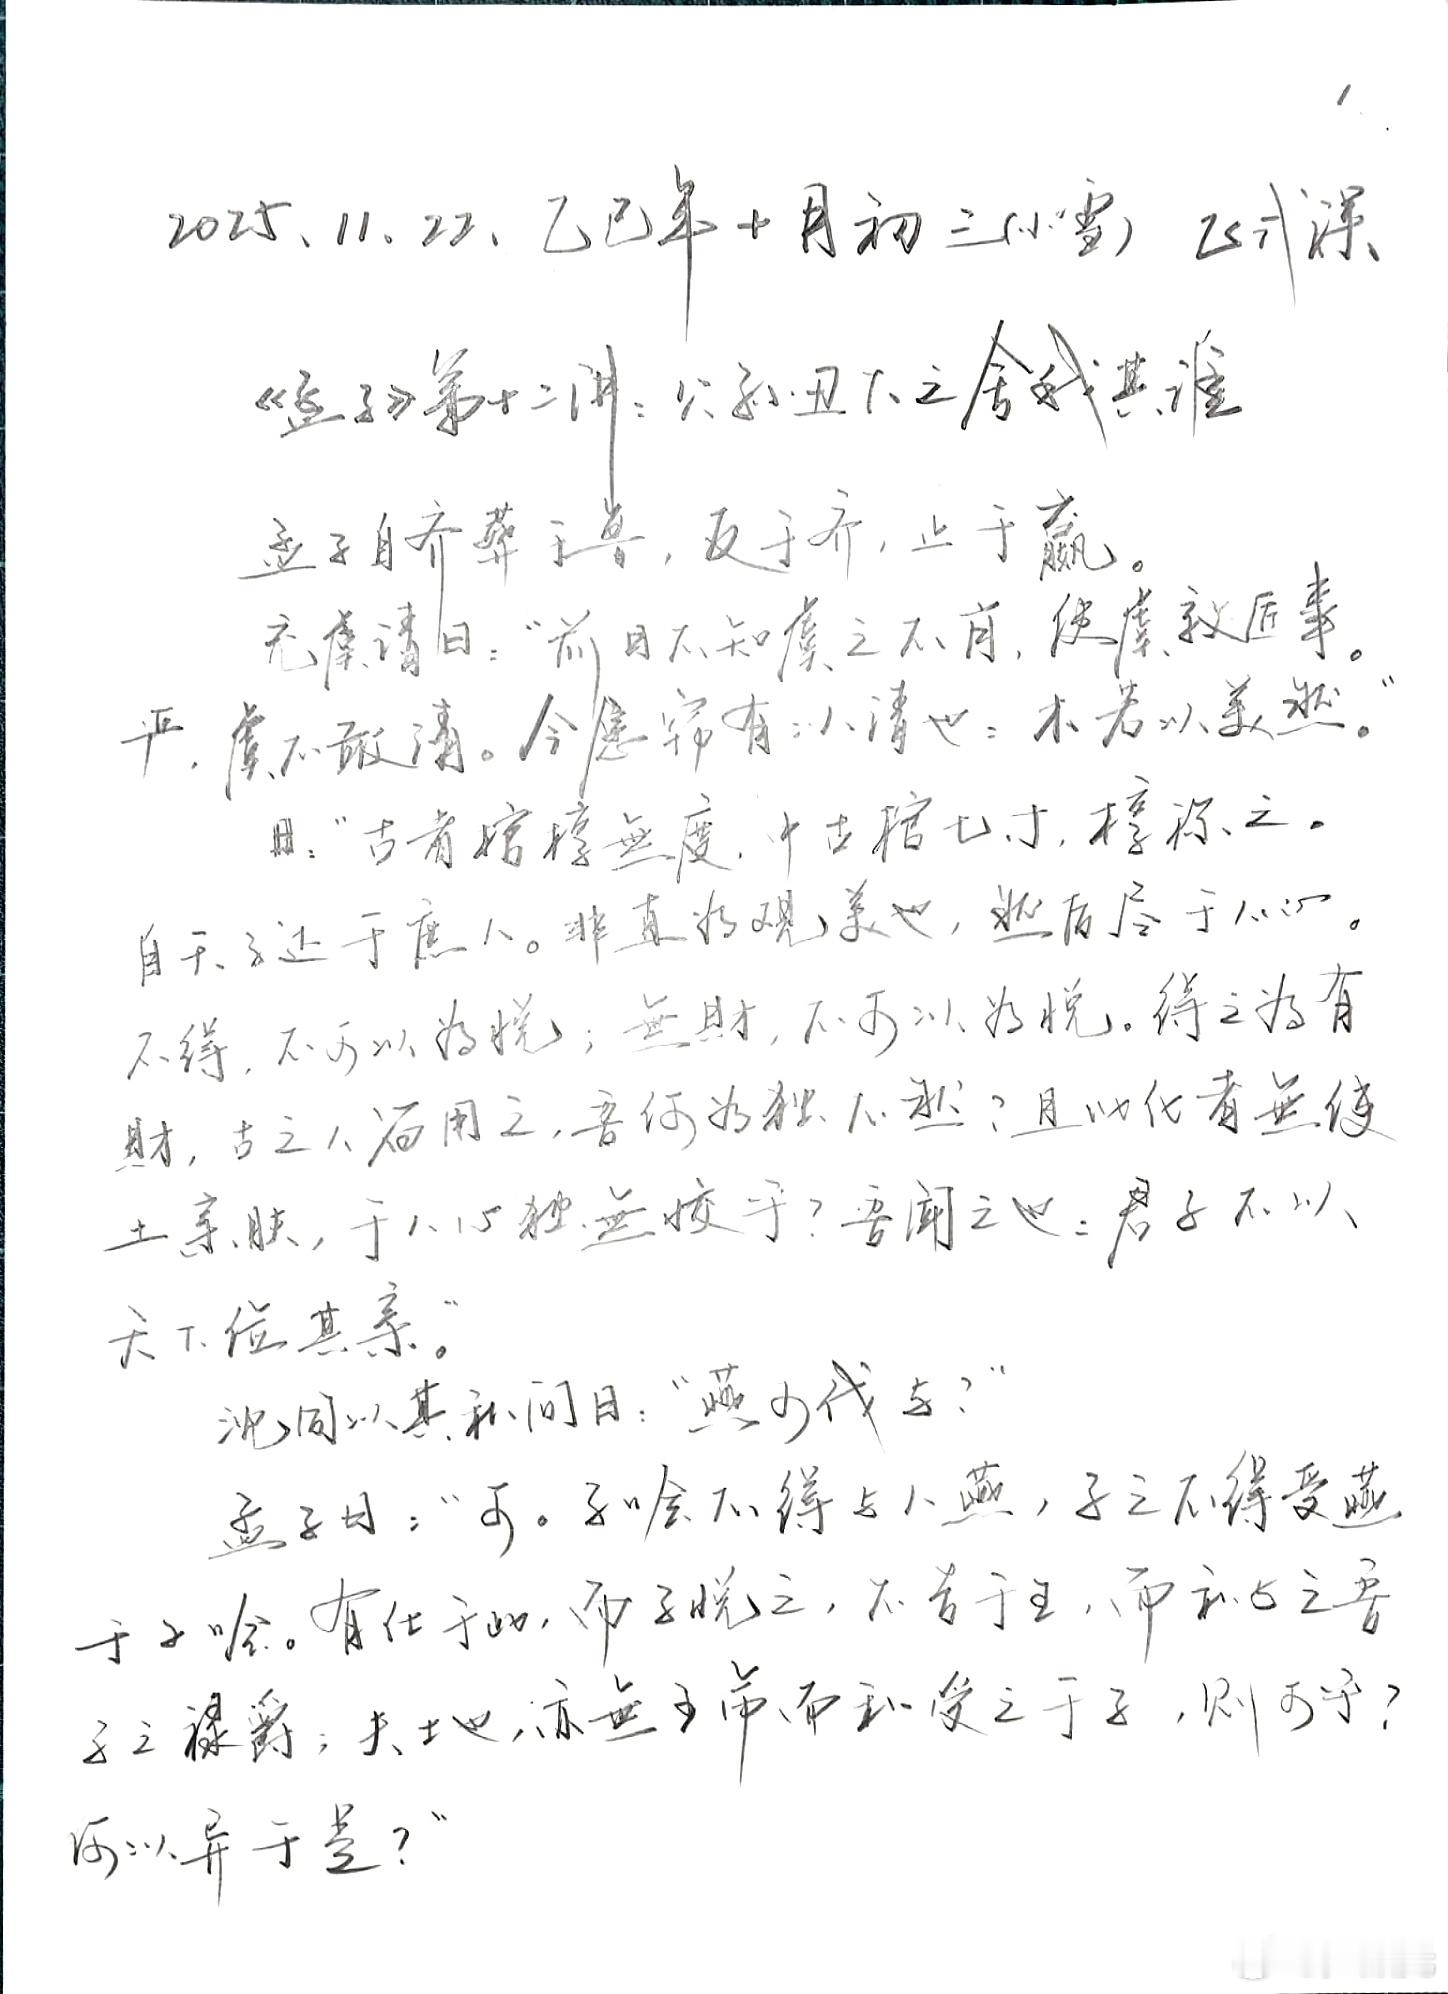 1
2025.11.22.乙巳年十月初三(小雪)
《孟子》第十二讲:公孙丑下之舍我其谁
孟子自齐葬于鲁,反于齐,止于嬴。
充虞请曰:“前日不知虞之不肖,使虞敦匠事。
严,虞不敢请。今愿窃有以请也:木若以美然。”
曰:“古者棺椁無度,中古棺七寸,椁称之。
自天子达于庶人。非直为观美也,然后尽于人心。
不得,不可以为悦;無财,不可以为悦。得之为有
财,古之人皆用之,吾何为独不然?且比化者無使
土亲肤,于人心独無恔乎?吾闻之也:君子不以
天下俭其亲。”
沈同以其私问曰:“燕可伐与?”
孟子曰:“可。子哙不得与人燕,子之不得受燕
于子哙。有仕于此,而子悦之,不告于王,而私与之吾
子之禄爵;夫士也,亦無王命而私受之于子,则可乎?
何以异于是?”